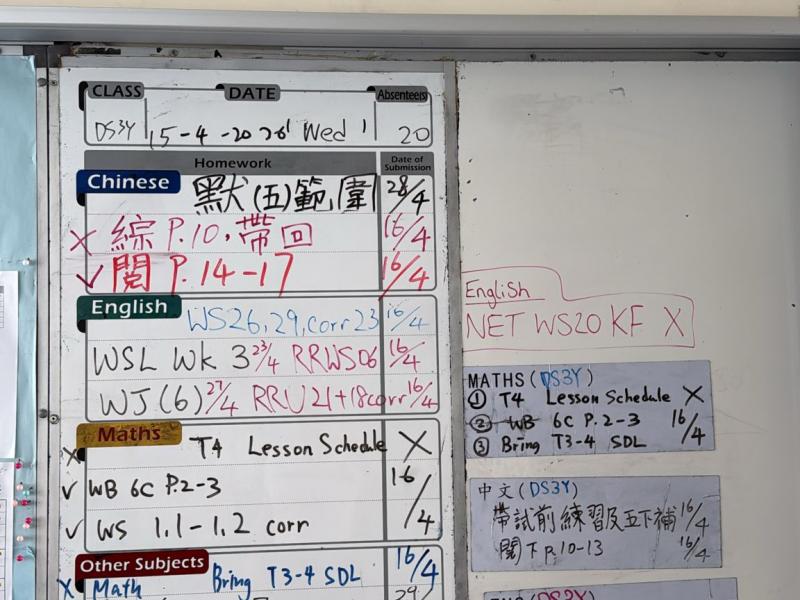 CLASS DATE Absentee(s)
DS3Y 15-4-2026 Wed 20
Homework Date of Submission
Chinese 默(五)範圍 28/4
X 綜 P.10, 帶回 16/4
✓ 閱 P.14-17 16/4
English WS26,29,corr23 16/4
WSL WK 3 23/4 RRWS06 16/4
WJ (6) 27/4 RRU21+18corr 16/4
Maths
X T4 Lesson Schedule X
✓ WB 6C P.2-3 16/4
✓ WS 1.1-1.2 corr
Other Subjects
X Math Bring T3-4 SDL 16/4
English
NET WS20 KF X
MATHS (DS3Y)
① T4 Lesson Schedule X
② WB 6C P.2-3 16/4
③ Bring T3-4 SDL
中文(DS3Y)
帶試前練習及五下補 16/4
閱下 P.10-13 16/4